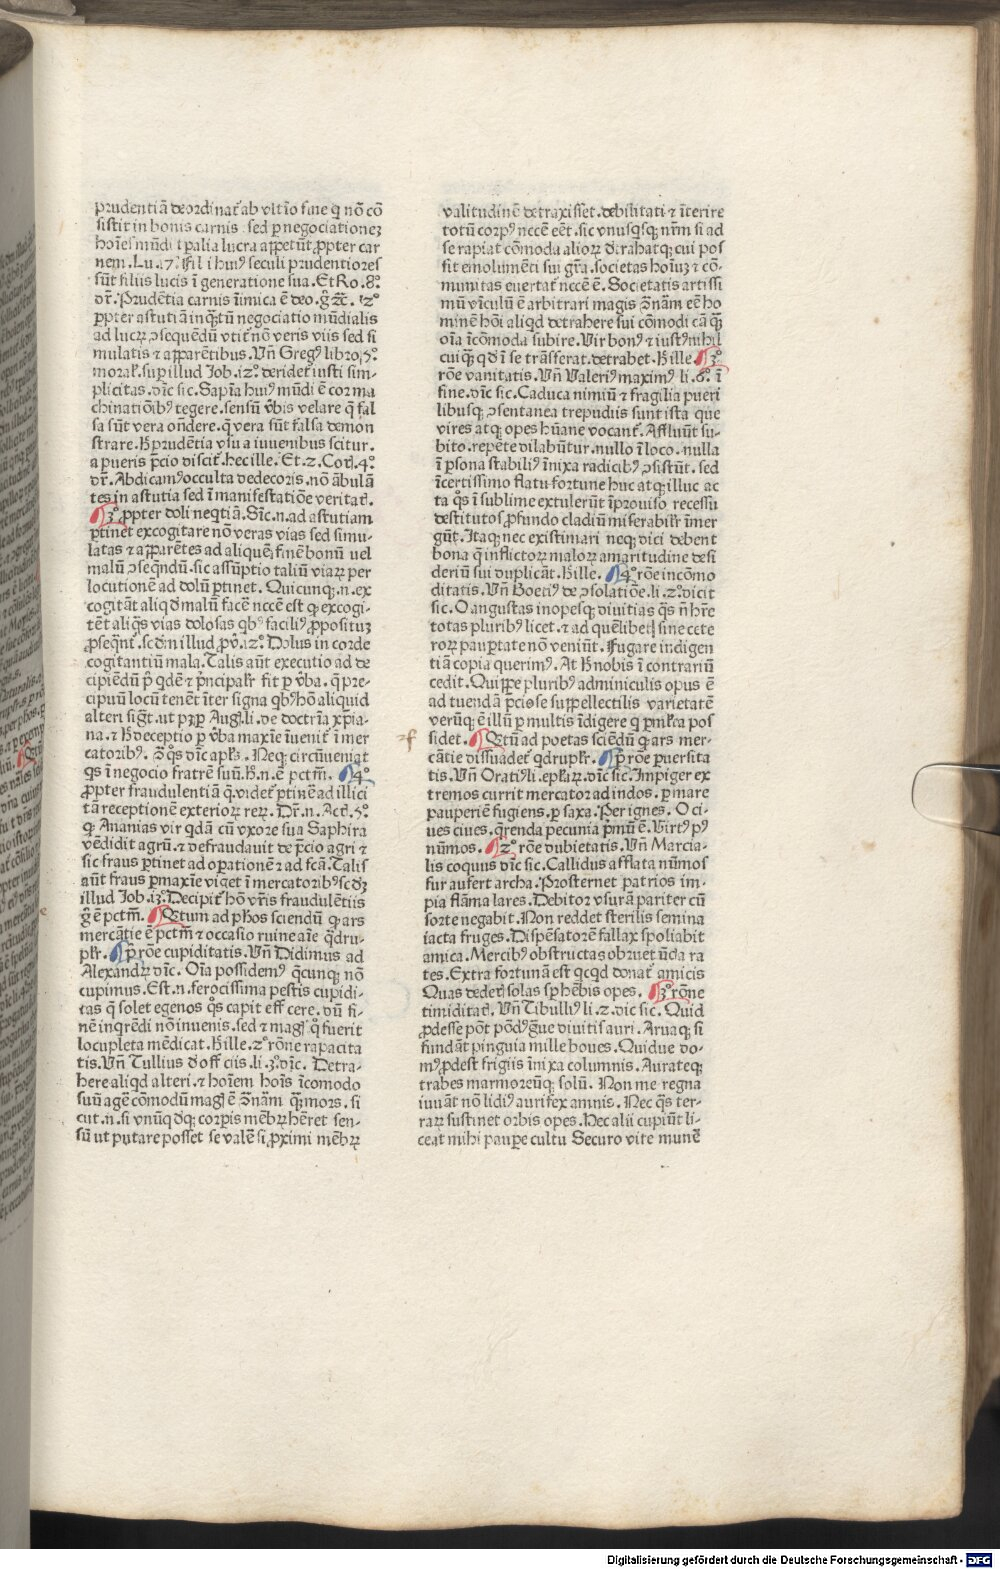 prudentiā deordinat᷑ ab vltīo fine q̇ nō cō
sistit in bonis carnis sed p̱ negocationeȝ
hoīes mūdi t palia lucra appetūt ꝓpter car
nem. Lu. 17. filii huiꝰ seculi prudentiores
sūt filiis lucis ī generatione sua. Et Ro. 8.º
dr̄. Prudētia carnis īimica ē deo. gͦ ⁊c̄. 2º
ꝓpter astutiā inq̄ꝫtū negociatio mūdialis
ad lucꝝ ꝯsequēdū vtit᷑ nō veris viis sed si
mulatis ⁊ apparētibus. Vn̄ Gregꝰ libro. 5º
moral᷑. suꝑ illud Job. 12.º deridet᷑ iusti sim-
plicitas. dīc sic. Sapīa huiꝰ mūdi ē cor ma
chinatiōibꝰ tegere. sensū ṽbis velare q̄ fal
sa sūt vera oñdere. q̄ vera sūt falsa demon
strare. h̄ prudētia vsu a iuuenibus scitur.
a pueris p̄cio discit᷑. hec ille. Et. 2. Cor̄. 4.º
dr̄. Abdicamꝰ occulta dedecoris. nō ābulā
tes in astutia sed ī manifestatiōe veritat᷑.
3º ꝓpter doli neq̄tiā. Sīc. n. ad astutiam
ꝑtinet excogitare nō veras vias sed simu-
latas ⁊ apparētes ad aliquē finē bonū uel
malū ꝯseq̄ndū. sic assūptio taliū viaꝝ per
locutionē ad dolū ꝑtinet. Quicunqꝫ. n. ex
cogitāt aliqͥd malū facē nccē est ꝙ excogi-
tēt aliq̄s vias dolosas qͥbꝰ faciliꝰ ꝓpositū
ꝓseq̄nt᷑. scd̄m illud ꝓṽ. 12.º Dolus in corde
cogitantiū mala. Talis aūt executio ad de
cipiēdū pͥ qͥdē ⁊ pͥncipalr̄ fit ꝑ ṽba. q̄ pre-
cipuū locū tenēt īter signa qͥbꝰ hō aliquid
alteri sigt᷑. ut pꝫ ꝑ Augl̄. li. de doctrīa xp̄ia-
na. ⁊ h̄ deceptio ꝑ ṽba maxīe īuenit᷑ ī mer
catoribꝰ. Ꝯ q̄s dīc apl̄s. Neqꝫ circūueniat
q̄s ī negocio fratrē suū. hͦ. n. ē pctm̄. 4º
ꝓpter fraudulentiā q̄ videt᷑ ꝑtinē ad illici
tā receptionē exterioꝝ reꝝ. Dr̄. n. Act᷑. 5.º
ꝙ Ananias vir qͥdā cū vxore sua Saphira
vēdidit agrū. ⁊ defraudauit de p̄cio agri ⁊
sic fraus ꝑtinet ad oꝑationē ⁊ ad fcā. Talis
aūt fraus ꝑmaxīe viget ī mercatoribꝰ scd̄ꝫ
illud Job. 13. Decipit᷑ hō vr̄is fraudulētiis
gͦ ē pctm̄. Qtum ad phos sciendū ꝙ ars
mercātie ē pctm̄ ⁊ occasio ruine aīe q̄dru-
plr̄. p̄ rōe cupiditatis. Vn̄ Didimus ad
Alexandꝝ dīc. Oīa possidemꝰ q̄cunqꝫ nō
cupimus. Est. n. ferocissima pestis cupidi-
tas q̄ solet egenos q̄s capit efficere. dū fi-
nē inq̄rēdi nō inuenis. sed ⁊ magꝭ qͦ fuerit
locupleta mēdicat. h̄ ille. 2º rōne rapacita
tis. Vn̄ Tullius d̄ officiis. li. 3.º dīc. Detra-
here aliqͥd alteri. ⁊ hoīem hoīs īcomodo
suū agē cōmodū magꝭ ē ꝯ nām q̄ꝫ mors. si
cut. n. si vnūqͥdqꝫ corꝑis mēbꝝ hēret sen-
sū ut putare posset se valē si ꝓximi mēbꝝ
valitudinē detraxisset. debilitati ⁊ īterire
totū corpꝰ nccē eēt. sic vnusqͥsqꝫ nr̄m si ad
se rapiat cōmoda alioꝝ dꝭrahatqꝫ cui pos
sit emolumēti sui gr̄a. societas hoīuꝫ ⁊ cō-
munitas euertat᷑ nccē ē. Societatis artissi
mū vīculū ē arbitrari magis ꝯ nām eē ho
minē hōi aliqͥd detrahere sui cōmodi cā q̄ꝫ
oīa īcōmoda subire. Vir bonꝰ ⁊ iustꝰ nihil
cuiq̄ꝫ qd̄ ī se trāsferat. detrahet. h̄ ille. 3º
rōe vanitatis. Vn̄ Valeriꝰ maximꝰ li. 6.º ī
fine. dīc sic. Caduca nimiū ⁊ fragilia pueri
libusqꝫ ꝯsentanea trepudiis sunt ista que
vires atqꝫ opes hūane vocant᷑. Affluūt su-
bito. repēte dilabūtur. nullo ī loco. nulla
ī ꝑsona stabiliꝰ īnixa radicibꝰ ꝯsistūt. sed
īcertissimo flatu fortune huc atqꝫ illuc ac
ta q̄s ī sublime extulerūt īprouiso recessu
destitutos ꝓfundo cladiū miserabilr̄ īmer
gūt. Itaqꝫ nec existimari neqꝫ dici debent
bona q̄ inflictoꝝ maloꝝ amaritudine desi
deriū sui duplicāt. h̄ ille. 4º rōe incōmo
ditatis. Vn̄ Boetiꝰ de ꝯsolatiōe. li. 2.º dicit
sic. O angustas inopesqꝫ diuitias q̄s n̄ hr̄e
totas pluribꝰ licet. ⁊ ad quēlibet sine cete
roꝝ pauꝑtate nō veniūt. Fugare indigen
tiā copia querimꝰ. At h̄ nobis ī contrariū
cedit. Quippe pluribꝰ adminiculis opus ē
ad tuendā p̄ciose suppellectilis varietatē
verūqꝫ ē illū ꝑmultis īdigere q̄ ꝑmlta pos
sidet. Qtū ad poetas sciēdū ꝙ ars mer-
cātie dissuadet᷑ q̄druplr̄. p̄ rōe ꝑuersita
tis. Vn̄ Oratiꝰ li. epl̄aꝝ. dīc sic. Impiger ex
tremos currit mercator ad indos. ꝑ mare
pauperiē fugiens. ꝑ saxa. Per ignes. O ci-
ues ciues. q̄renda pecunia pͥmū ē. Virtꝰ pꝰ
nūmos. 2º rōe dubietatis. Vn̄ Marcia-
lis coquus dīc sic. Callidus afflata nūmos
fur aufert archa. Prosternet patrios im-
pia flāma lares. Debitor vsurā pariter cū
sorte negabit. Non reddet sterilis semina
iacta fruges. Dispēsatorē fallax spoliabit
amica. Mercibꝰ obstructas obruet ūda ra
tes. Extra fortunā est qͥcqͥd donat᷑ amicis
Quas dedeꝭ solas sp̄ hēbis opes. 3º rōne
timiditat᷑. Vn̄ Tibulliꝰ li. 2. dīc sic. Quid
ꝓdesse pōt pōdꝰ gͣue diuitis auri. Aruaqꝫ si
fundāt pinguia mille boues. Quidue do-
mꝰ ꝓdest frigiis īnixa columnis. Aurateqꝫ
trabes marmoreūqꝫ solū. Non me regna
iuuāt nō lidiꝰ aurifex amnis. Nec q̄s ter-
raꝝ sustinet orbis opes. Hec alii cupiūt li-
ceat mihi pauꝑe cultu Securo vite munē
Digitalisierung gefördert durch die Deutsche Forschungsgemeinschaft - DFG